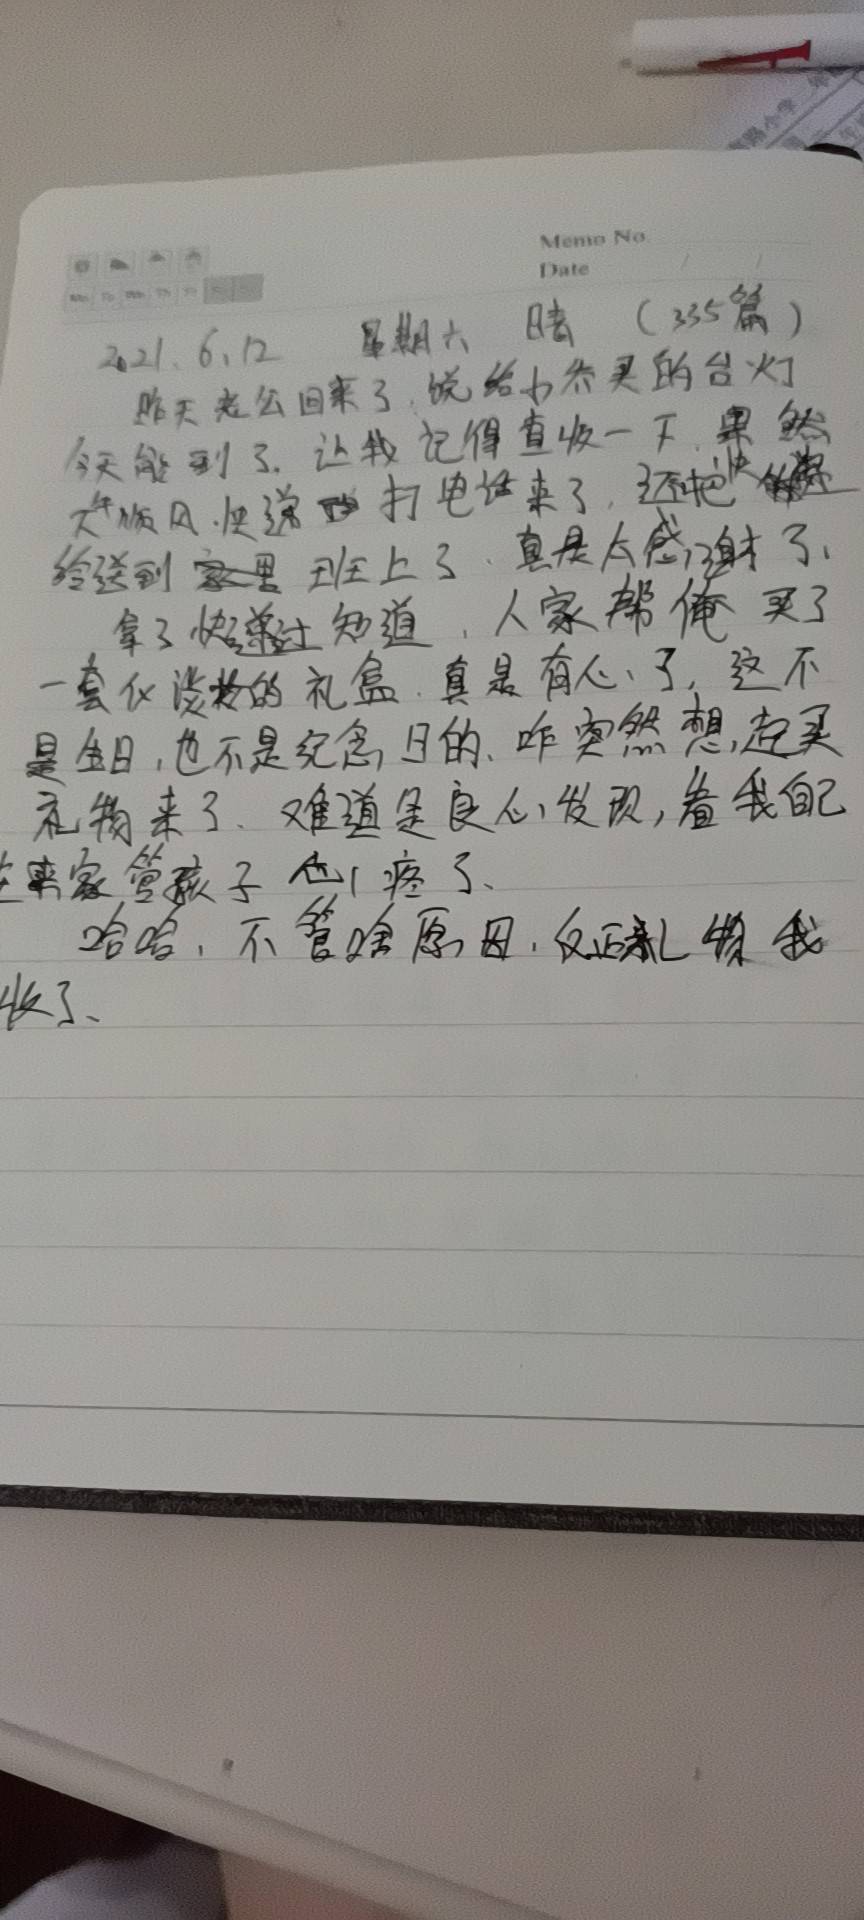 Memo No.
Date / /
2021.6.12 星期六 晴 (335篇)
昨天老公回来了,说给小乔买的台灯
今天能到了.让我记得查收一下.果然
顺风.快递打电话来了,还把快递
给送到班上了.真是太感谢了,
拿了快递才知道,人家帮俺买了
一套化淡妆的礼盒.真是有心了,这不
是生日,也不是纪念日的、咋突然想起买
礼物来了、难道是良心发现,看我自己
在家管孩子心疼了、
哈哈,不管啥原因,反正礼物我
收了、